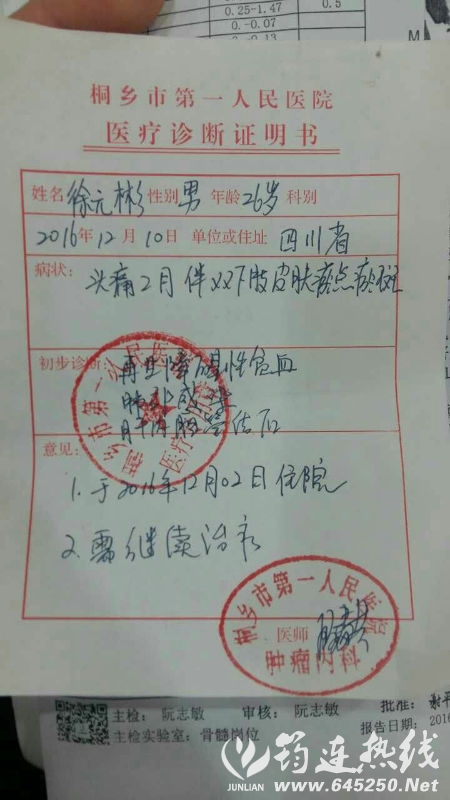 0.25-1.47
0.5
0.-0.07
M
桐乡市第一人民医院
医疗诊断证明书
姓名 徐元彬 性别 男 年龄 26岁 科别
2016年12月10日 单位或住址 四川省
病状: 头痛2月伴双下肢皮肤瘀点瘀斑
初步诊断: 再生障碍性贫血
肺部感染
肝内胆管结石
意见:
1.于2016年12月02日住院
2.需继续治疗
桐乡市第一人民医院
医师
肿瘤内科
主检: 阮志敏 审核: 阮志敏 批准:
主检实验室: 骨髓岗位 报告日期: 2016
筠连热线
JUNLIAN www.645250.Net